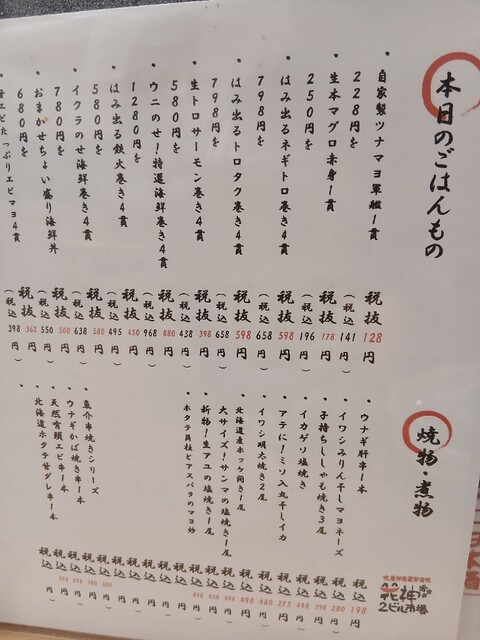 本日のごはんもの
自家製ツナマヨ軍艦1貫
228円を
税抜128円
(税込141円)
生本マグロ赤身1貫
250円を
税抜178円
(税込196円)
はみ出るネギトロ巻き4貫
798円を
税抜598円
(税込658円)
はみ出るトロタク巻き4貫
798円を
税抜598円
(税込658円)
生トロサーモン巻き4貫
580円を
税抜398円
(税込438円)
ウニのせ!特選海鮮巻き4貫
1280円を
税抜880円
(税込968円)
はみ出る鉄火巻き4貫
580円を
税抜450円
(税込495円)
イクラのせ海鮮巻き4貫
780円を
税抜580円
(税込638円)
おまかせちょい盛り海鮮丼
680円を
税抜500円
(税込550円)
甘エビたっぷりエビマヨ4貫
税抜362円
(税込398円)
焼物・煮物
ウナギ肝串1本
税込198円
イワシみりん干しマヨネーズ
税込280円
子持ちししゃも焼き3尾
イカゲソ塩焼き
アテに!ミソ入丸干しイカ
イワシ明太焼き2尾
北海道産ホッケ開き1尾
大サイズ!サンマの塩焼き1尾
新物!生アユの塩焼き1尾
ホタテ貝柱とアスパラのマヨ炒
魚介串焼きシリーズ
ウナギかば焼き串1本
天然有頭エビ串1本
北海道ホタテ甘ダレ串1本
2ビル市場